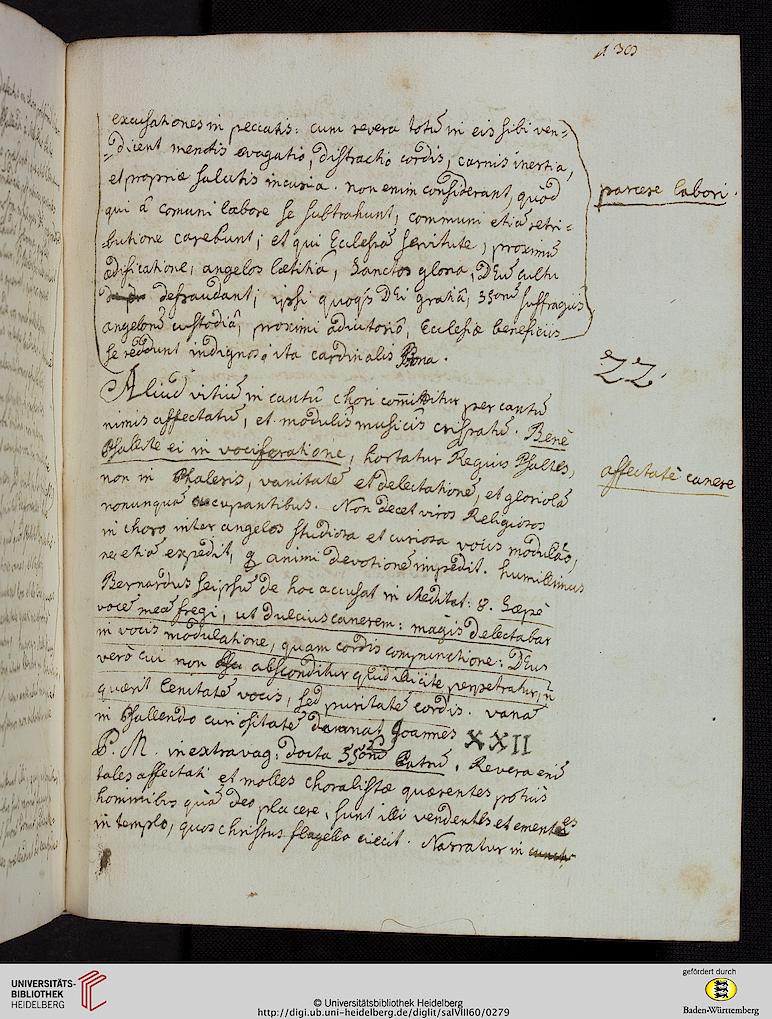 130
excusationes in peccatis: cum revera totū in eis sibi ven=
=dicent mentis evagatio, distractio cordis, carnis inertia,
et propriæ salutis incuria. non enim considerant, quod
parcere labori.
qui â comuni labore se subtrahunt, communi etiā retri=
butione carebunt; et qui Ecclesiā servitute, proximū
ædificatione, angelos lætitiâ, Sanctos gloria, Deū cultu
defraudant; ipsi quoq́s Dei gratiâ, SSorū suffragiis
angelorū custodiâ, proximi adiutoriô, Ecclesiæ beneficiis
se reddunt indignos; ita cardinalis Bona.
22.
Aliud vitiū in cantū chori comittitur per cantū
nimis affectatū, et modulis musicis crispatū. Benè
Psallite ei in vociferatione, hortatur Regius Psaltes,
affectatè canere
non in Phaleris, vanitatē et delectationē, et gloriolā
nonunquā aucupantibus. Non decet viros Religiosos
in choro inter angelos studiosa et curiosa vocis modulās,
ne etiā expedit, q animi devotionē impedit. humillimus
Bernardus seipsū de hoc accusat in Meditat: 8. Sæpè
vocē meā fregi, ut dulcius canerem: magis delectabar
in vocis modulatione, quam cordis compunctione: Deus
verò cui non absconditur q̄uid illicitè perpetratur, ñ
quærit lenitatē vocis, sed puritatē cordis. vanā
in Psallendo curiositatē damnat Joannes XXII
P. M. in extravag: docta SSorū Patrū. Revera enī
tales affectati et molles choralistæ quærentes potiùs
hominibus quā deo placere, sunt illi vendentes et ementes
in templo, quos christus flagello eiecit. Narratur in
UNIVERSITÄTS-
BIBLIOTHEK
HEIDELBERG
© Universitätsbibliothek Heidelberg
http://digi.ub.uni-heidelberg.de/diglit/salVIII60/0279
gefördert durch
Baden-Württemberg